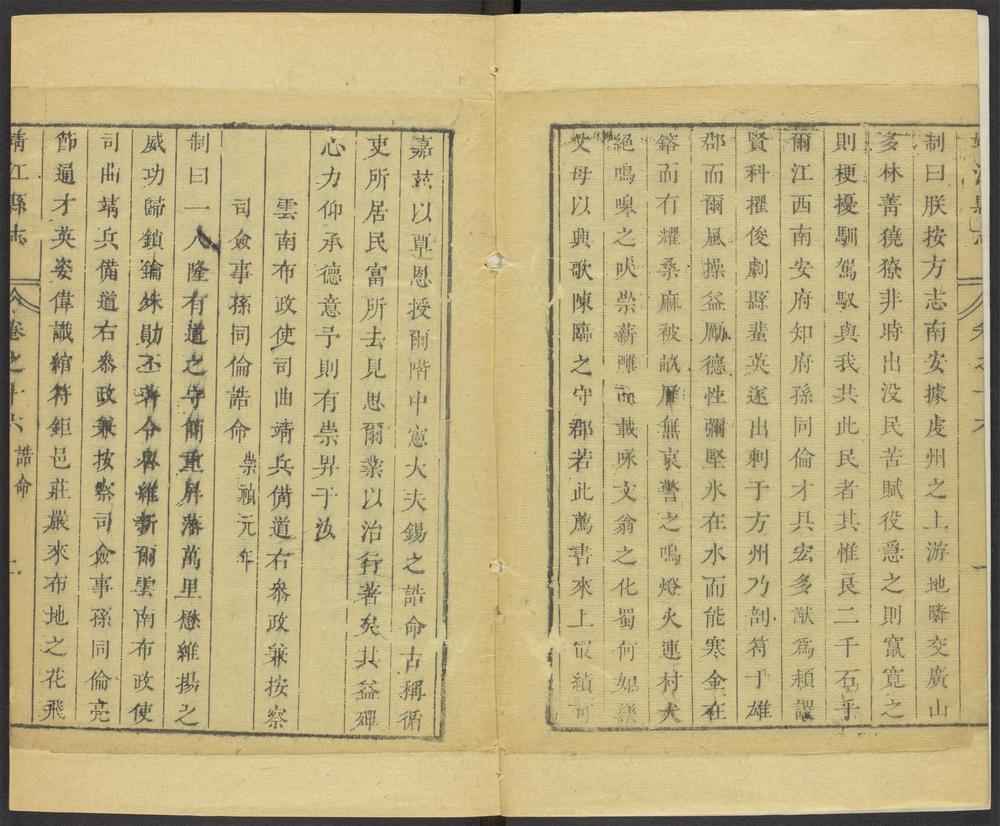 制曰朕按方志南安據虔州之上游地隣交廣山
多林菁獞獠非時出没民苦賦役急之則竄寛之
則梗擾馴駕馭與我共此民者其惟良二千石乎
爾江西南安府知府孫同倫才具宏多猷爲穎謬
賢科擢俊劇縣蜚英遂出刺于方州乃剖符于雄
郡而爾風操益勵德性彌堅氷在水而能寒金在
鎔而有耀桑麻被畝雁無哀警之鳴燈火連村犬
絶鳴嘷之吠崇薪載咏文翁之化蜀何如
父母以興歌陳臨之守郡若此薦書來上最績可
嘉兹以覃恩授爾階中憲大夫錫之誥命古稱循
吏所居民富所去見思爾業以治行著矣其益殫
心力仰承德意予則有崇昇于汝
雲南布政使司曲靖兵備道右叅政兼按察
司僉事孫同倫誥命 崇禎元年
制曰一人隆有道之守簡重屏藩萬里懋維揚之
威功歸鎖鑰殊勛丕著令譽維新爾雲南布政使
司曲靖兵備道右叅政兼按察司僉事孫同倫亮
節通才英姿偉識綰符鉅邑莊嚴來布地之花飛
靖江縣志 卷之十六 誥命 二